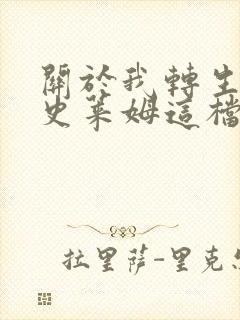 關於我轉生
史萊姆這檔
拉里薩-里克